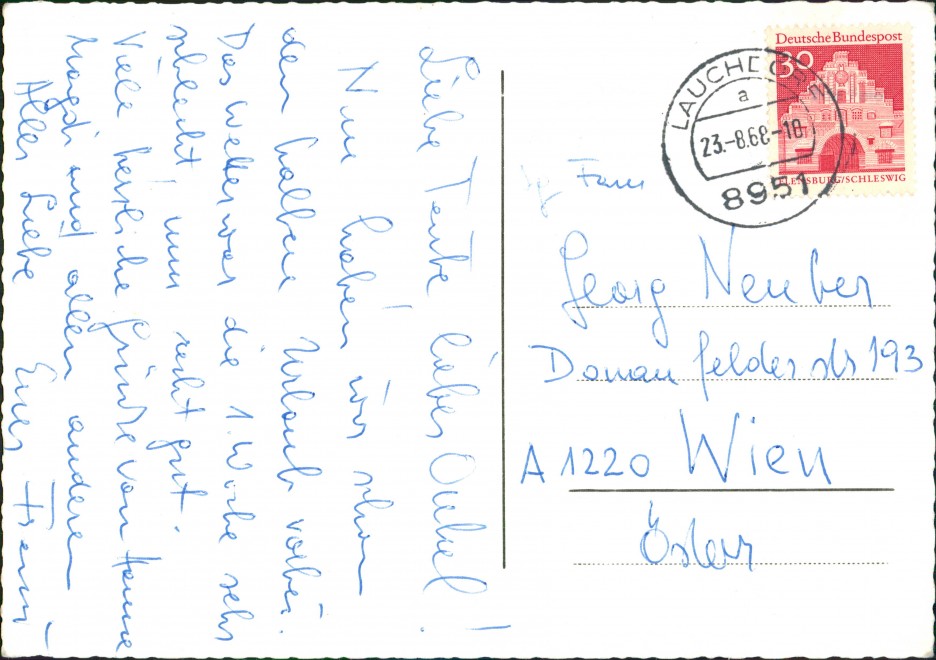 Liebe Tante lieber Onkel!
Nun haben wir schon
den halben Urlaub vorbei.
Das Wetter war die 1. Woche sehr
schlecht nun recht gut.
Viele herzliche Grüße von Hanne
Margit und allen anderen
Alles Liebe Euer Franz
Deutsche Bundespost
30
FLENSBURG/SCHLESWIG
LAUCHDORF
a
23.-8.68-18
8951
Fam
Georg Neuber
Donaufelderstr 193
A 1220 Wien
Österr